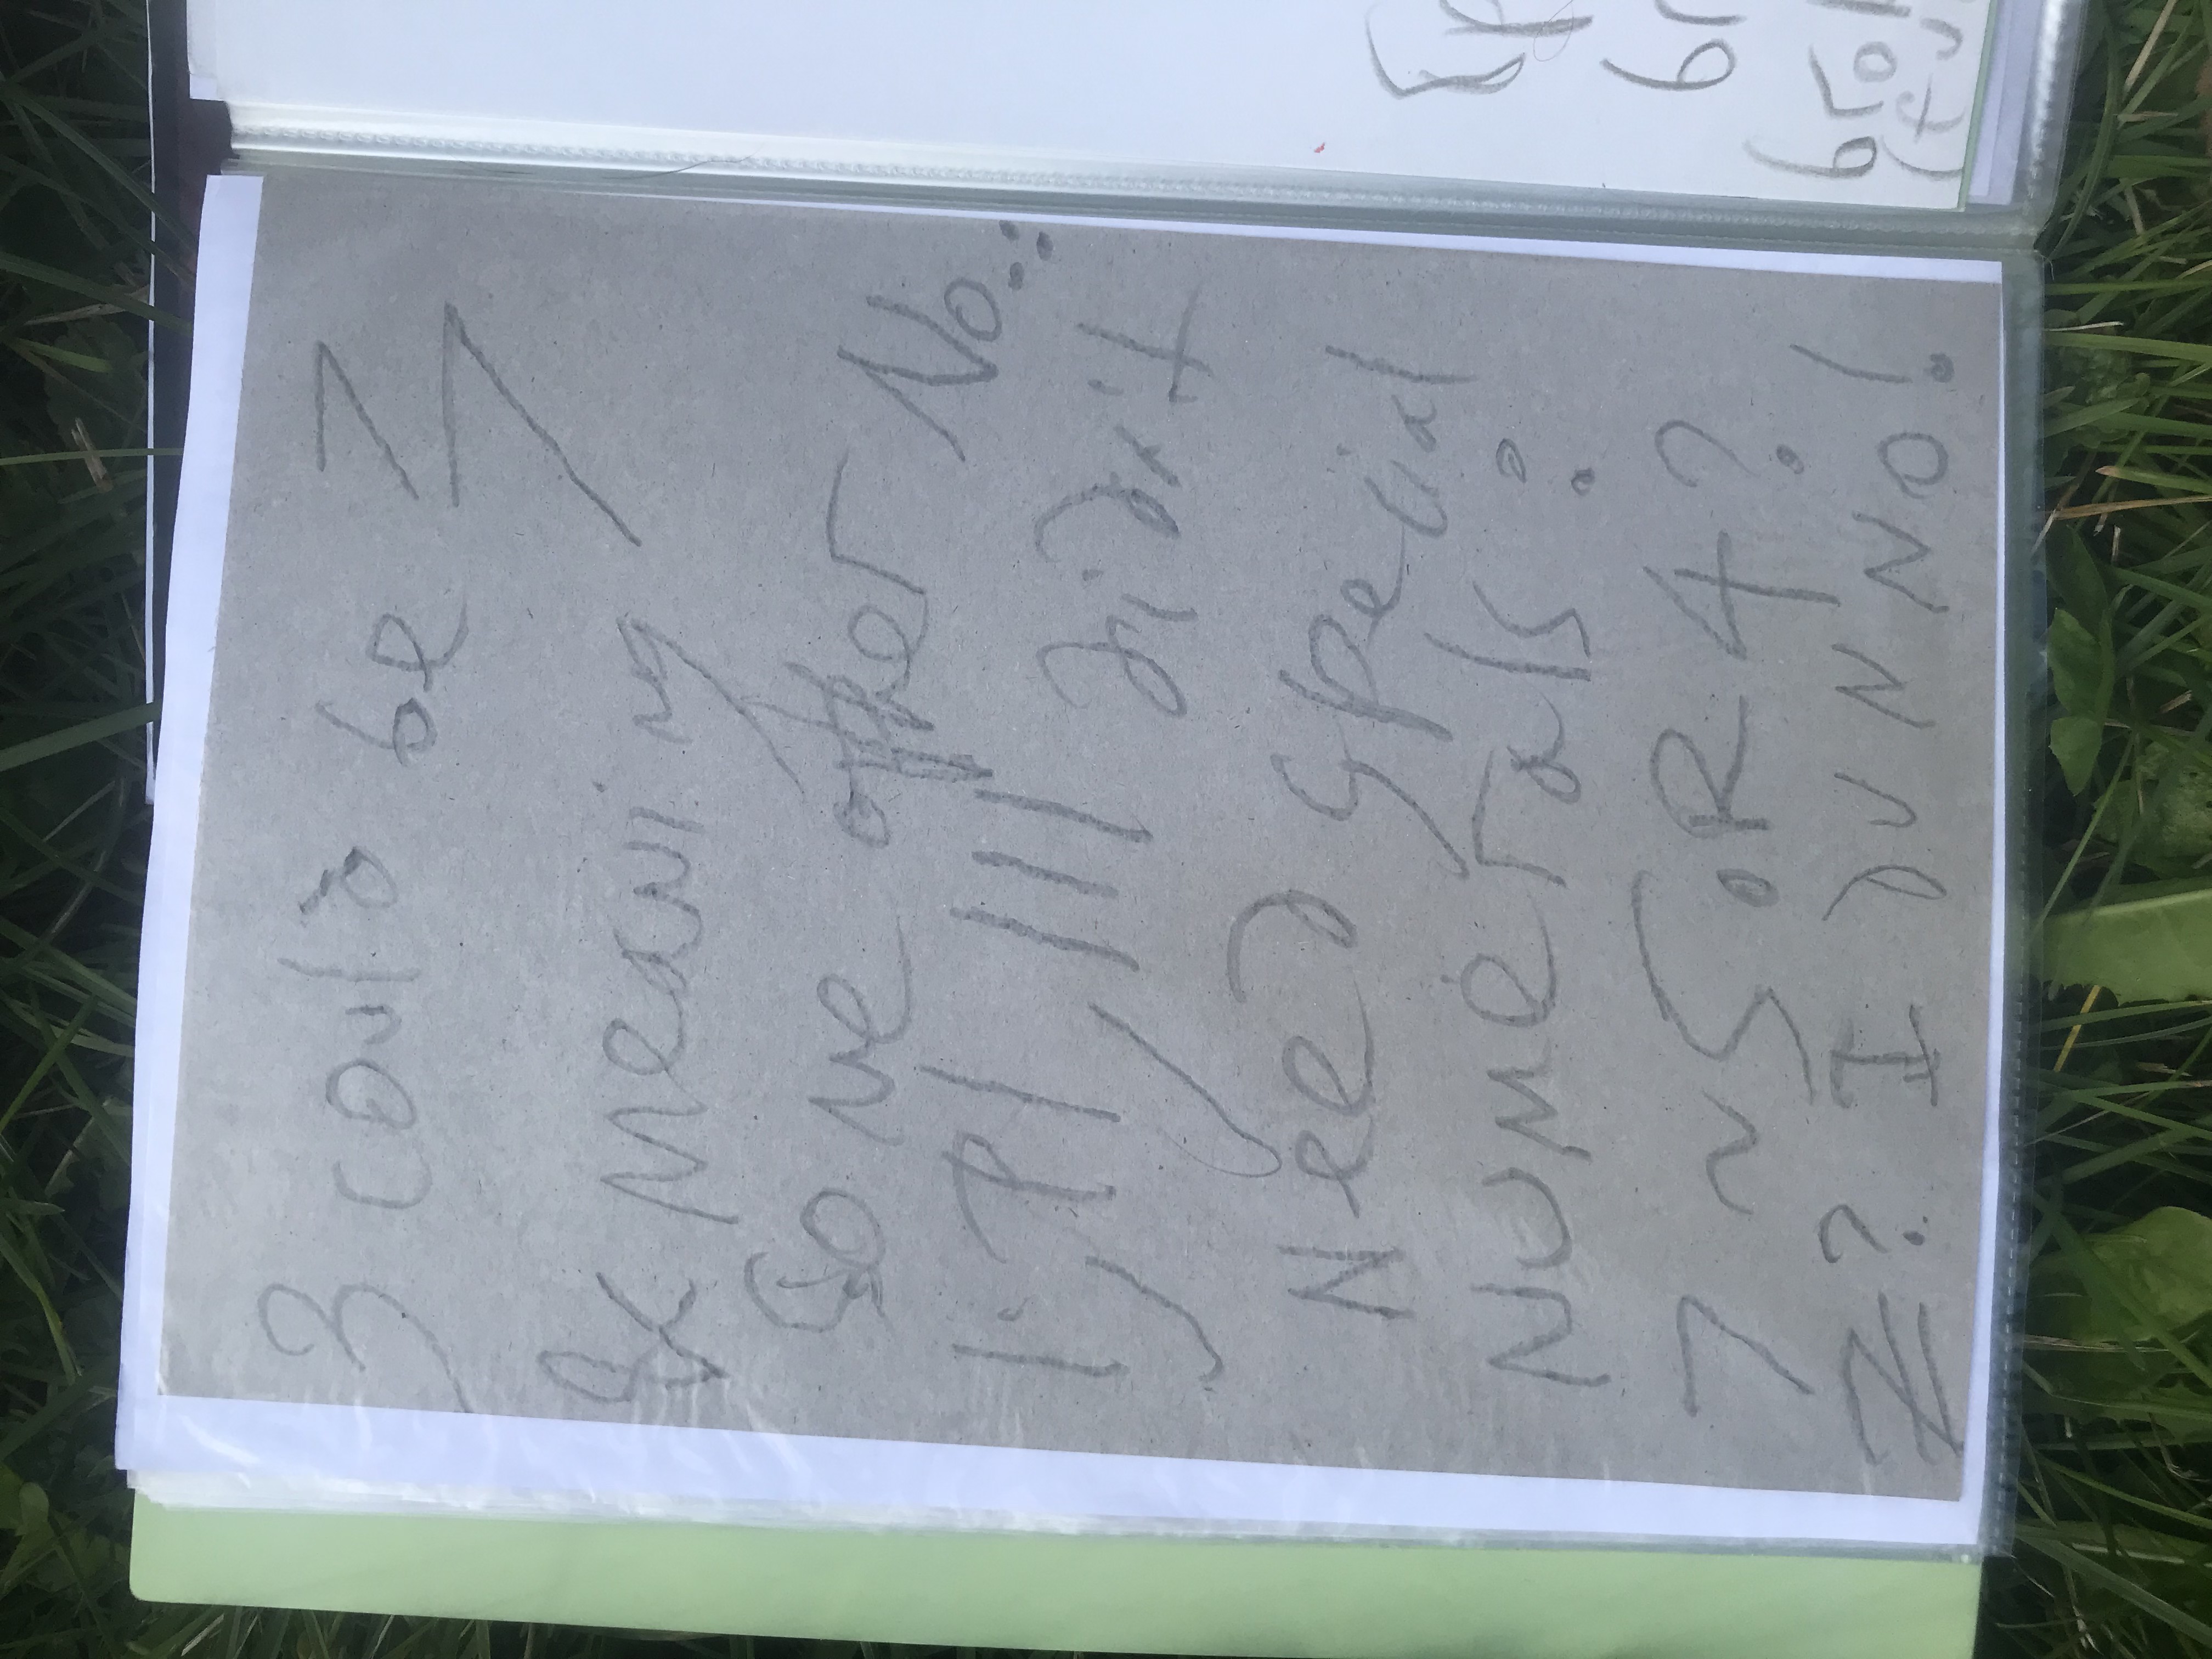 3 could be 7
7
& meaning
Some other No..
1, 11, 111 didn't
Need special
Numerals?
7 ~ 5 OR 4?
Z? I DUNNO!